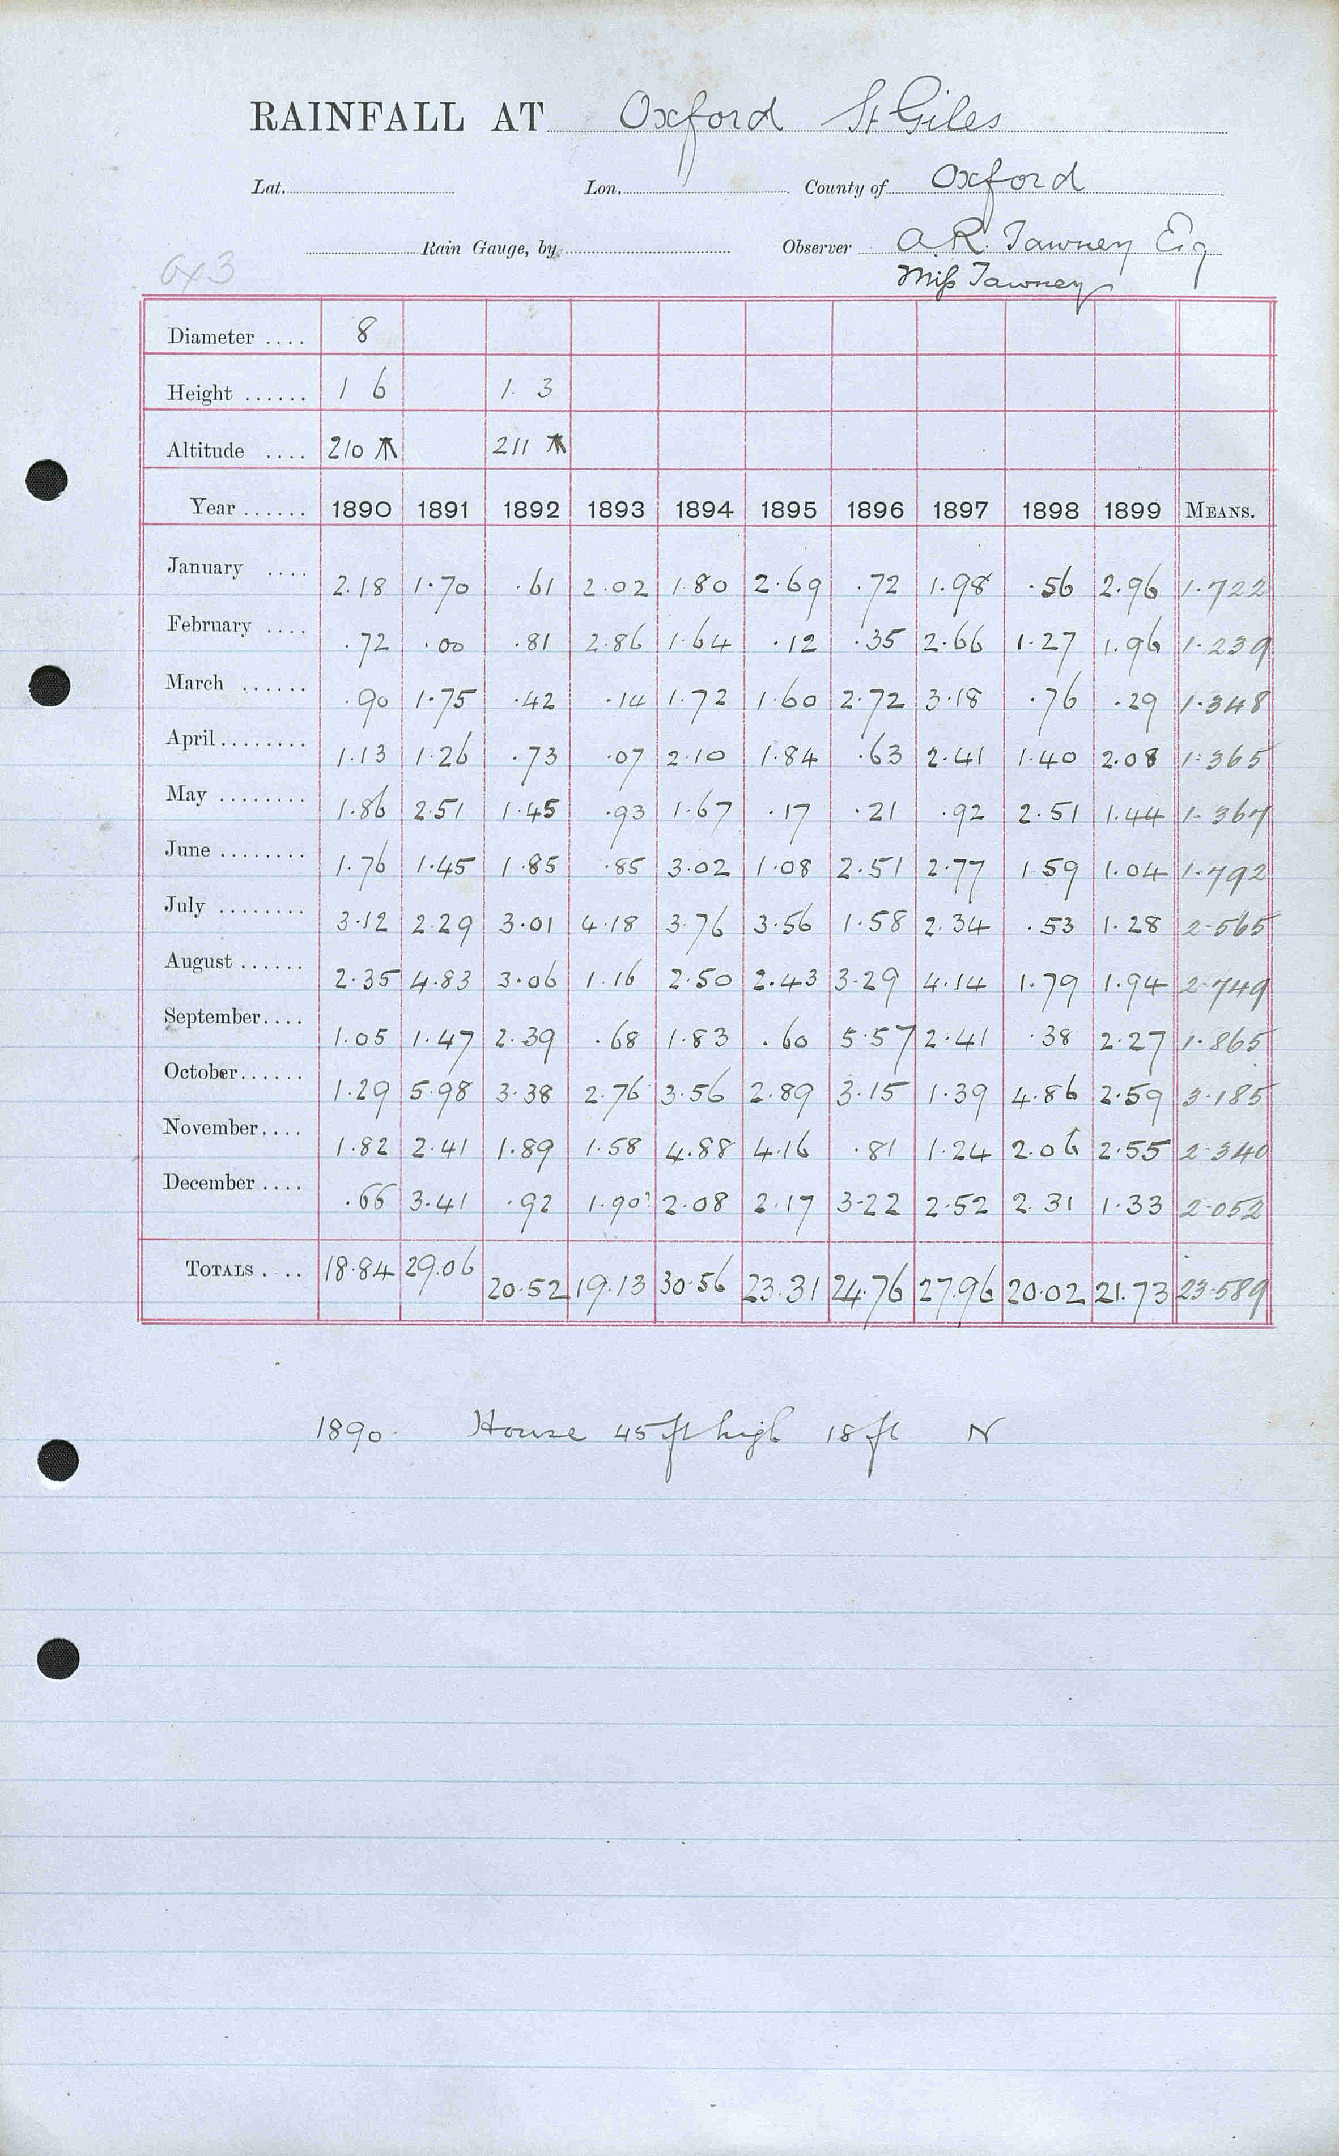 RAINFALL AT Oxford St Giles
Lat. Lon. County of Oxford
Rain Gauge, by Observer A.R. Tawney Esq
Miss Tawney
Diameter .... 8
Height ...... 1 6 1. 3
Altitude .... 210 211
Year ...... 1890 1891 1892 1893 1894 1895 1896 1897 1898 1899 MEANS.
January .... 2.18 1.70 .61 2.02 1.80 2.69 .72 1.98 .56 2.96 1.722
February .... .72 .00 .81 2.86 1.64 .12 .35 2.66 1.27 1.96 1.239
March ...... .90 1.75 .42 .14 1.72 1.60 2.72 3.18 .76 .29 1.348
April ........ 1.13 1.26 .73 .07 2.10 1.84 .63 2.41 1.40 2.08 1.365
May ........ 1.86 2.51 1.45 .93 1.67 .17 .21 .92 2.51 1.44 1.367
June ........ 1.76 1.45 1.85 .85 3.02 1.08 2.51 2.77 1.59 1.04 1.792
July ........ 3.12 2.29 3.01 4.18 3.76 3.56 1.58 2.34 .53 1.28 2.565
August ...... 2.35 4.83 3.06 1.16 2.50 2.43 3.29 4.14 1.79 1.94 2.749
September .... 1.05 1.47 2.39 .68 1.83 .60 5.57 2.41 .38 2.27 1.865
October ...... 1.29 5.98 3.38 2.76 3.56 2.89 3.15 1.39 4.86 2.59 3.185
November .... 1.82 2.41 1.89 1.58 4.88 4.16 .81 1.24 2.06 2.55 2.340
December .... .66 3.41 .92 1.90 2.08 2.17 3.22 2.52 2.31 1.33 2.052
TOTALS .... 18.84 29.06 20.52 19.13 30.56 23.31 24.76 27.96 20.02 21.73 23.589
1890. House 45 ft high 18 ft N